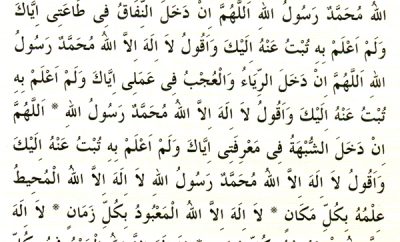 اللهُ مُحَمَّدٌ رَسُولُ اللهِ اَللّٰهُمَّ اِنْ دَخَلَ النِّفَاقُ فِى طَاعَتِى اِيَّاكَ
وَلَمْ اَعْلَمْ بِهِ تُبْتُ عَنْهُ اِلَيْكَ وَاَقُولُ لَا اِلٰهَ اِلَّا اللهُ مُحَمَّدٌ رَسُولُ
اللهِ اَللّٰهُمَّ اِنْ دَخَلَ الرِّيَاءُ وَالْعُجْبُ فِى عَمَلِى اِيَّاكَ وَلَمْ اَعْلَمْ بِهِ
تُبْتُ عَنْهُ اِلَيْكَ وَاَقُولُ لَا اِلٰهَ اِلَّا اللهُ مُحَمَّدٌ رَسُولُ اللهِ * اَللّٰهُمَّ
اِنْ دَخَلَ الشُّبْهَةُ فِى مَعْرِفَتِى اِيَّاكَ وَلَمْ اَعْلَمْ بِهِ تُبْتُ عَنْهُ اِلَيْكَ
وَاَقُولُ لَا اِلٰهَ اِلَّا اللهُ مُحَمَّدٌ رَسُولُ اللهِ لَا اِلٰهَ اِلَّا اللهُ الْمُحِيطُ
عِلْمُهُ بِكُلِّ مَكَانٍ * لَا اِلٰهَ اِلَّا اللهُ الْمَعْبُودُ بِكُلِّ زَمَانٍ * لَا اِلٰهَ